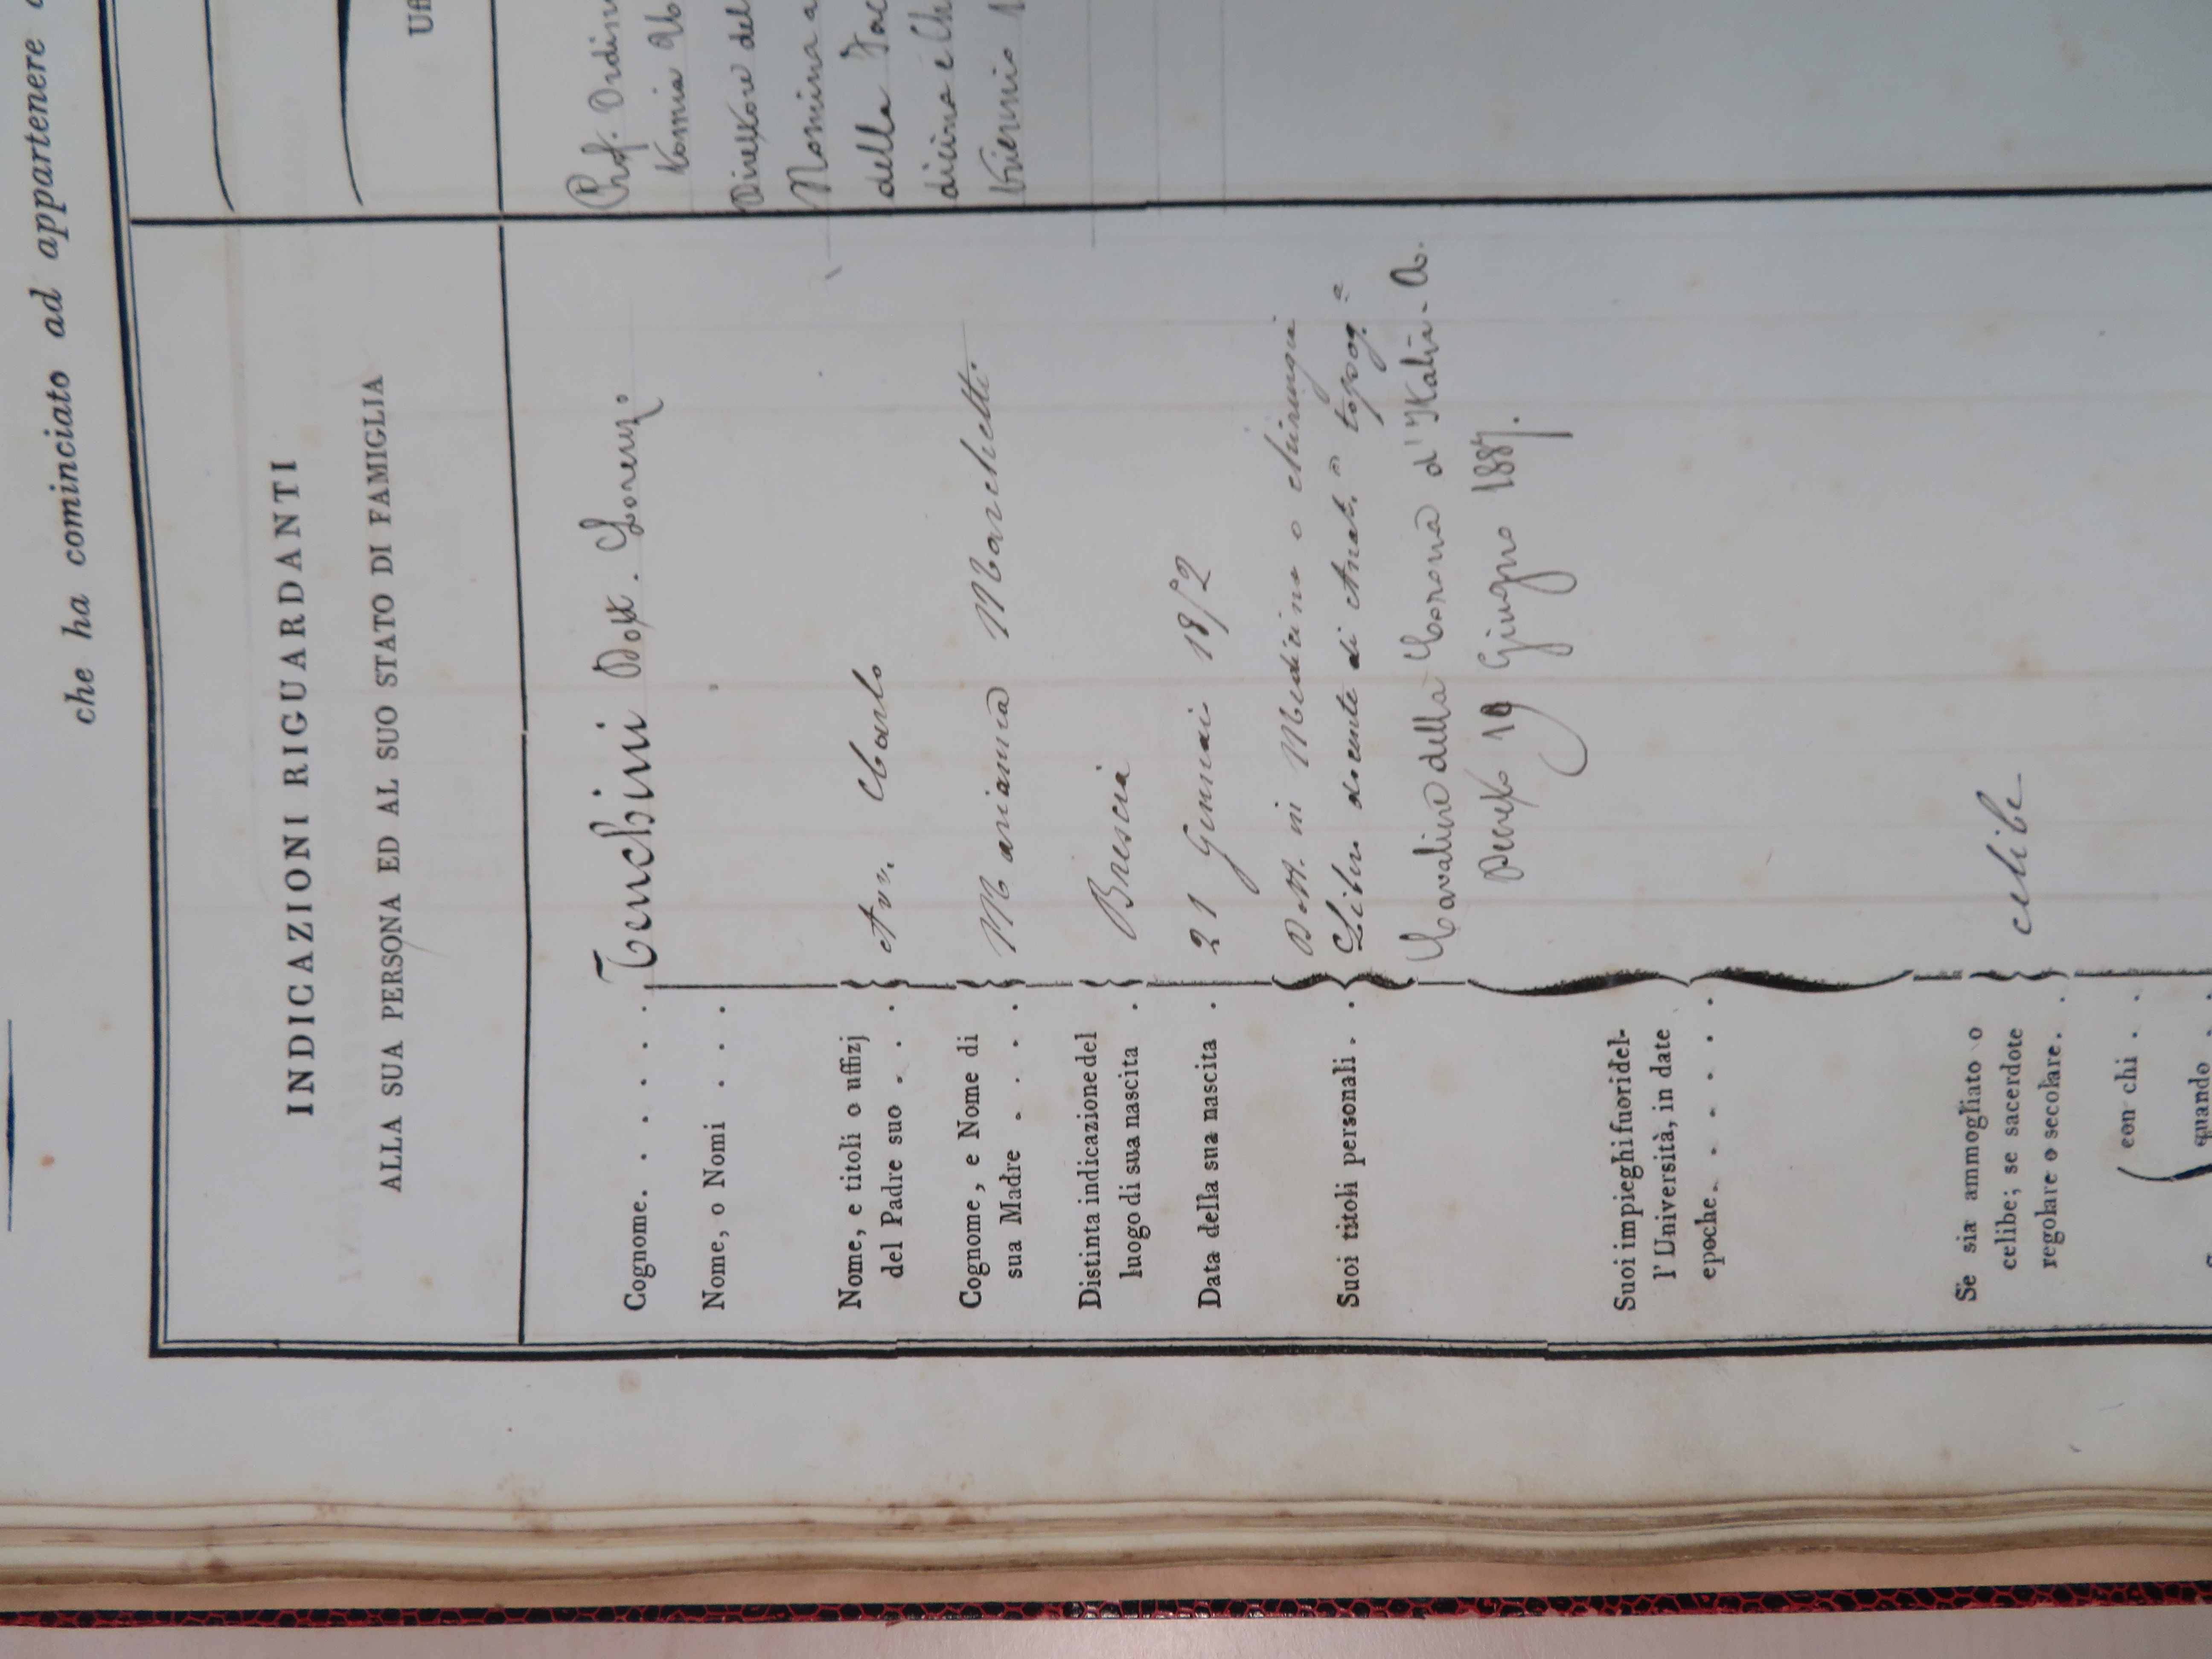 che ha cominciato ad appartenere
INDICAZIONI RIGUARDANTI
ALLA SUA PERSONA ED AL SUO STATO DI FAMIGLIA
Cognome. . . . . . Tenchini Dott. Lorenzo
Nome, o Nomi . . .
Nome, e titoli o uffizj
del Padre suo . . . Avv. Carlo
Cognome, e Nome di
sua Madre . . . . Marianna Marchetti
Distinta indicazione del
luogo di sua nascita . Brescia
Data della sua nascita . 21 Gennaio 1852
Dott. in Medicina e chirurgia
Suoi titoli personali . . Libero docente di Anat.a topog.a
Cavaliere della Corona d'Italia
Decreto 19 Giugno 1887.
Suoi impieghi fuori del-
l' Università, in date
epoche. . . . . .
Se sia ammogliato o
celibe; se sacerdote celibe
regolare o secolare. .
con chi . .
quando .
Prof. Ordin
tomia
Direttore del
Nomina a
della Fac
dicina e Ch
triennio